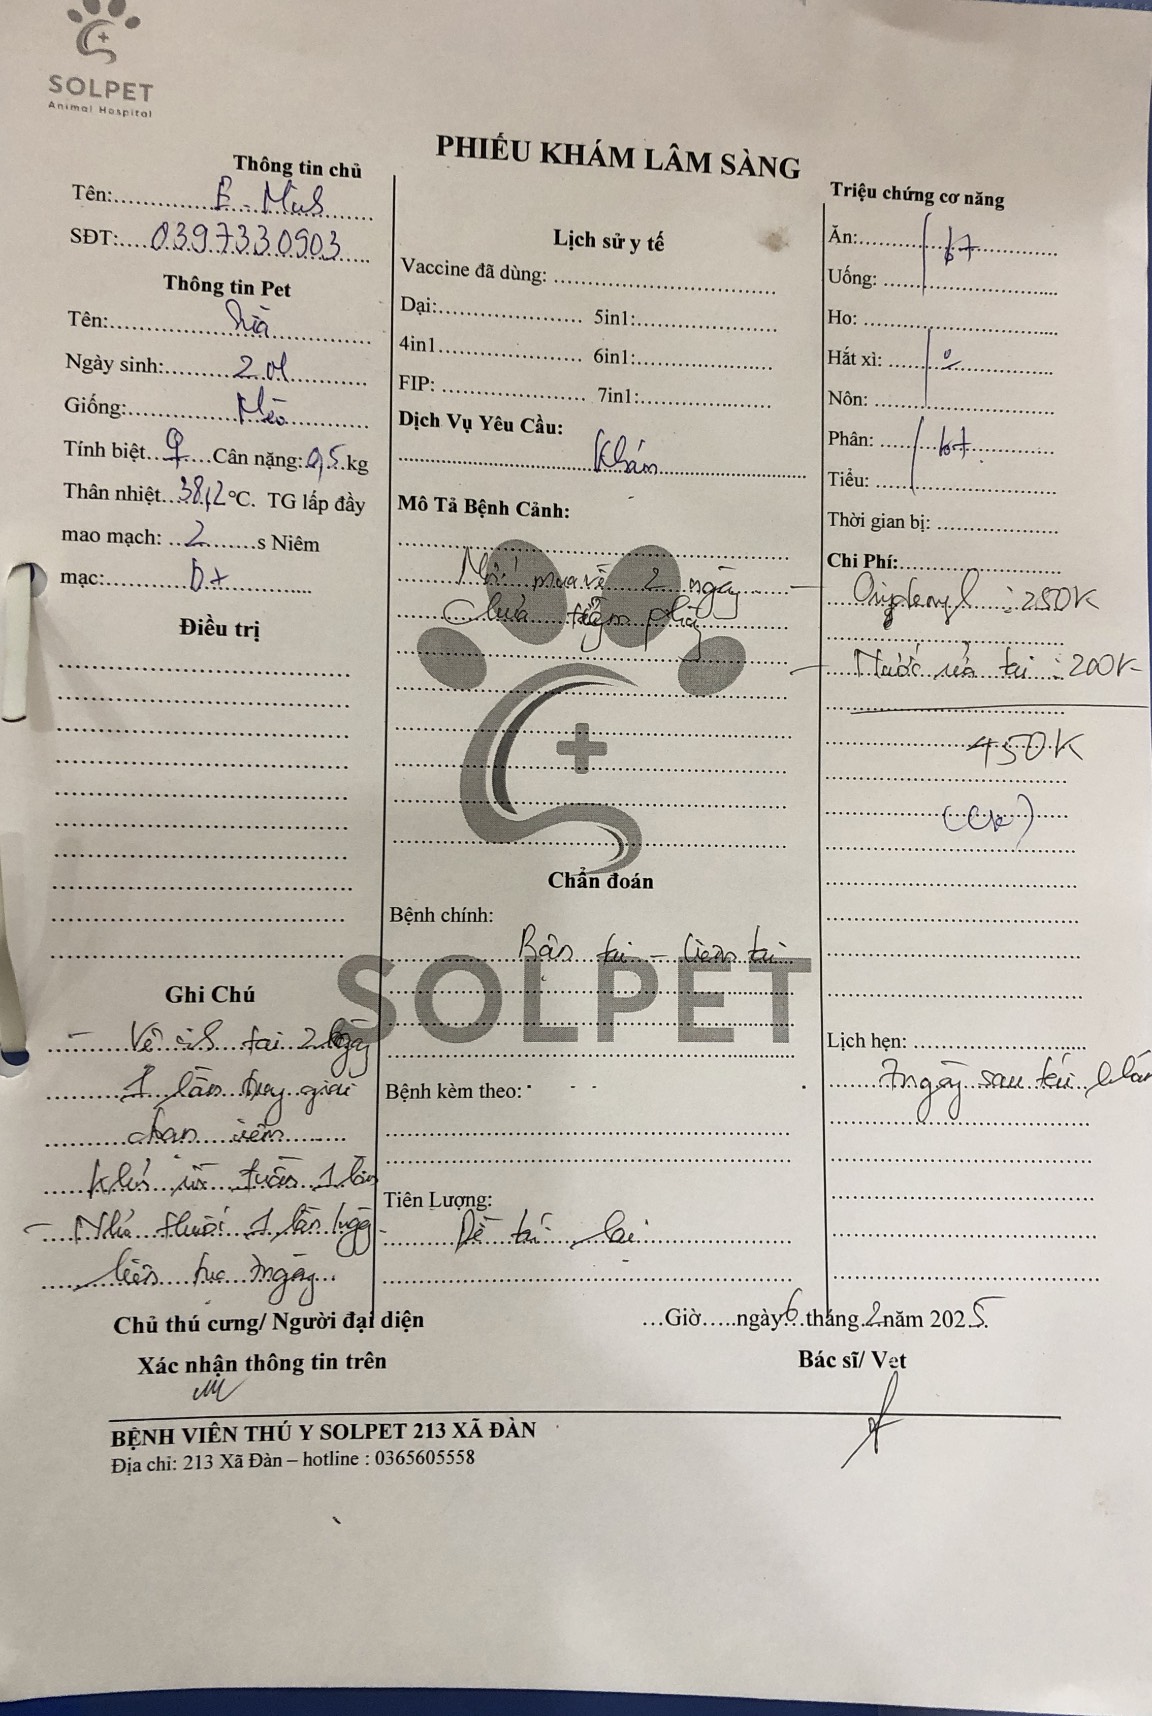 SOLPET
Animal Hospital
PHIẾU KHÁM LÂM SÀNG
Thông tin chủ
Tên:
SĐT: 0397330903
Thông tin Pet
Tên:
Ngày sinh: 2
Giống: Mèo
Tính biệt ♀ Cân nặng: 0,5 kg
Thân nhiệt 38,2 °C. TG lấp đầy
mao mạch: 2 s Niêm
mạc: bt
Điều trị
Ghi Chú
- Vệ sinh tai 2 ngày
1 lần trong giai
đoạn viêm
Khỏi rồi tuần 1 lần
- Nhỏ thuốc 1 lần/ngày
liên tục 7 ngày
Lịch sử y tế
Vaccine đã dùng:
Dại: 5in1:
4in1 6in1:
FIP: 7in1:
Dịch Vụ Yêu Cầu:
Khám
Mô Tả Bệnh Cảnh:
Mới mua về 2 ngày
Chưa tiêm phòng
Chẩn đoán
Bệnh chính:
Bẩn tai - viêm tai
SOLPET
Bệnh kèm theo:
Tiên Lượng:
Dễ tái lại
Triệu chứng cơ năng
Ăn: bt
Uống:
Ho:
Hắt xì: 0
Nôn:
Phân: bt
Tiểu:
Thời gian bị:
Chi Phí:
- : 250K
- Nước rửa tai : 200K
450K
(CK)
Lịch hẹn:
7 ngày sau tái khám
Chủ thú cưng/ Người đại diện
Xác nhận thông tin trên
...Giờ.....ngày 6 tháng 2 năm 2025
Bác sĩ/ Vet
BỆNH VIÊN THÚ Y SOLPET 213 XÃ ĐÀN
Địa chỉ: 213 Xã Đàn – hotline : 0365605558